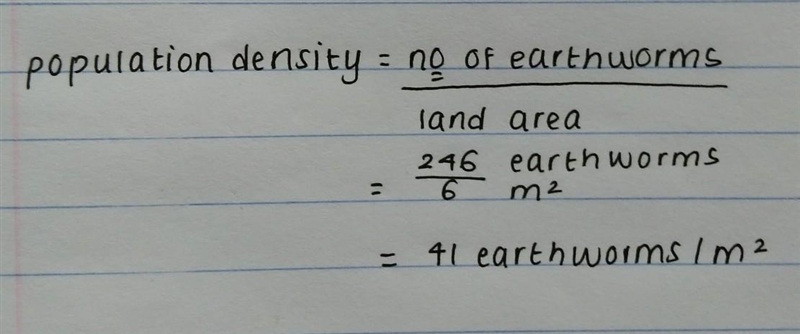 population density = no of earthworms
land area
= 246 earthworms
6 m²
= 41 earthworms/m²